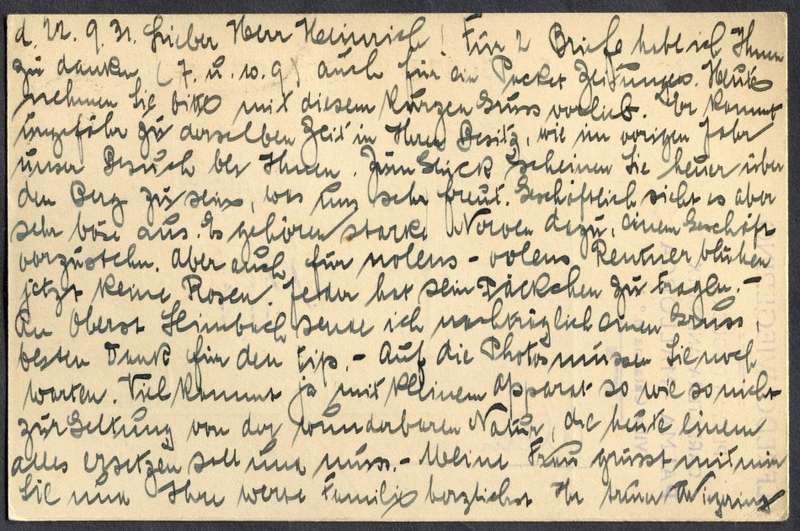 d. 22. 9. 31. Lieber Herr Heinrich! Für 2 Briefe habe ich Ihnen
zu danken (7. u. 10. 9) auch für ein Packet Zeitungen. Heute
nehmen Sie bitte mit diesem kurzen Gruss vorlieb. Er kommt
ungefähr zu derselben Zeit in Ihren Besitz, wie im vorigen Jahr
unser Besuch bei Ihnen. Zum Glück scheinen Sie heuer über
den Berg zu sein, was uns sehr freut. Geschäftlich sieht es aber
sehr böse aus. Es gehören starke Nerven dazu, einem Geschäft
vorzustehn. Aber auch für nolens - volens Rentner blühen
jetzt keine Rosen. Jeder hat sein Päckchen zu tragen. -
An Oberst Heimbach sende ich nachträglich einen Gruss,
besten Dank für den tip. - Auf die Photos müssen Sie noch
warten. Viel kommt ja mit kleinem Apparat so wie so nicht
zur Geltung von der wunderbaren Natur, die heute einem
alles ersetzen soll und muss. - Meine Frau grüsst mit mir
Sie und Ihre werte Familie herzlichst Ihr treuer